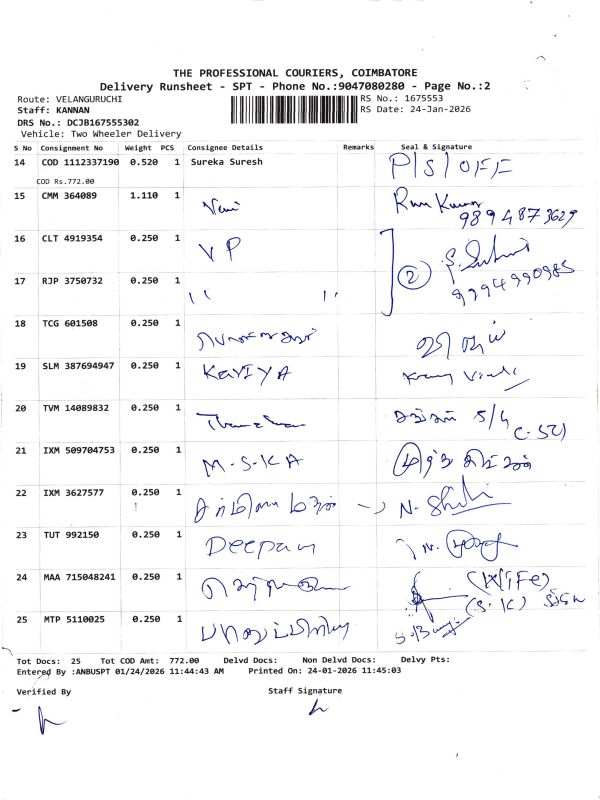 THE PROFESSIONAL COURIERS, COIMBATORE
Delivery Runsheet - SPT - Phone No.:9047080280 - Page No.:2
Route: VELANGURUCHI
RS No.: 1675553
Staff: KANNAN
RS Date: 24-Jan-2026
DRS No.: DCJB167555302
Vehicle: Two Wheeler Delivery
S No Consignment No Weight PCS Consignee Details Remarks Seal & Signature
14 COD 1112337190 0.520 1 Sureka Suresh P/S/OFF
COD Rs.772.00
15 CMM 364089 1.110 1 Ram Kumar
9894873629
16 CLT 4919354 0.250 1 V P
17 RJP 3750732 0.250 1 " " 2 9994990985
18 TCG 601508 0.250 1
19 SLM 387694947 0.250 1 KaVIYA
20 TVM 14089832 0.250 1 5/4
21 IXM 509704753 0.250 1 M.S.K.A
22 IXM 3627577 0.250 1
23 TUT 992150 0.250 1 Deepan
24 MAA 715048241 0.250 1 (Wife)
(S.K)
25 MTP 5110025 0.250 1
Tot Docs: 25 Tot COD Amt: 772.00 Delvd Docs: Non Delvd Docs: Delvy Pts:
Entered By :ANBUSPT 01/24/2026 11:44:43 AM Printed On: 24-01-2026 11:45:03
Verified By Staff Signature